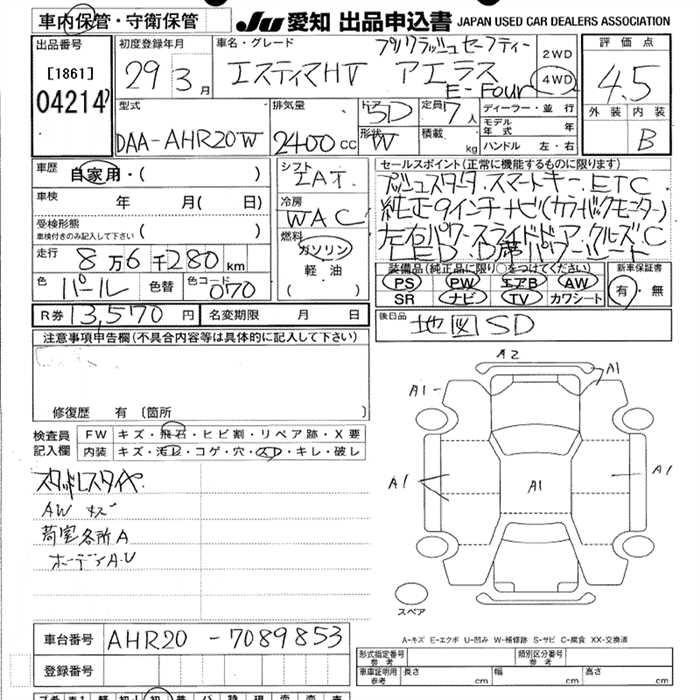 車内保管・守衛保管
JU 愛知 出品申込書 JAPAN USED CAR DEALERS ASSOCIATION
出品番号
[1861]
04214
初度登録年月
29年3月
車名・グレード
プリクラッシュセーフティー
エスティマHV アエラス
E-Four
2WD
4WD
評価点
4.5
外装 内装
B
型式
DAA-AHR20W
排気量
2400cc
ドア
5D
形状
W
定員
7人
積載
kg
ディーラー・並行
モデル年式 年
ハンドル 左・右
車歴
自家用・( )
車検 年 月( 日)
受検形態
車検付きのみ記入して下さい ( )
走行
8万6千280km
色
パール
色替
色コード
070
R券 13,570円
名変期限 月 日
シフト
IAT
冷房
WAC
燃料
ガソリン
軽油
( )
セールスポイント(正常に機能するものに限ります)
プッシュスタータ・スマートキー・ETC
純正9インチナビ(カラーバックモニター)
左右パワースライドドア・クルーズC
LED・D席パワーシート
装備品(純正品に限り○をつけてください)
PS PW エアB AW
SR ナビ TV カワシート
新車保証書
有・無
後日品
地図SD
注意事項申告欄(不具合内容等は具体的に記入して下さい)
修復歴 有 〔箇所 〕
検査員記入欄
FW キズ・飛石・ヒビ割・リペア跡・X要
内装 キズ・汚レ・コゲ・穴・スレ・キレ・破レ
スタッドレスタイヤ
AW キズ
荷室各所A
ボーディA.U
A2
A1
A1
A1
A1
A1
スペア
A-キズ E-エクボ U-凹み W-補修跡 S-サビ C-腐食 XX-交換済
車台番号 AHR20-7089853
登録番号
形式指定番号
参考
類別区分番号
参考
車庫証明用
参考
長さ cm 幅 cm 高さ cm